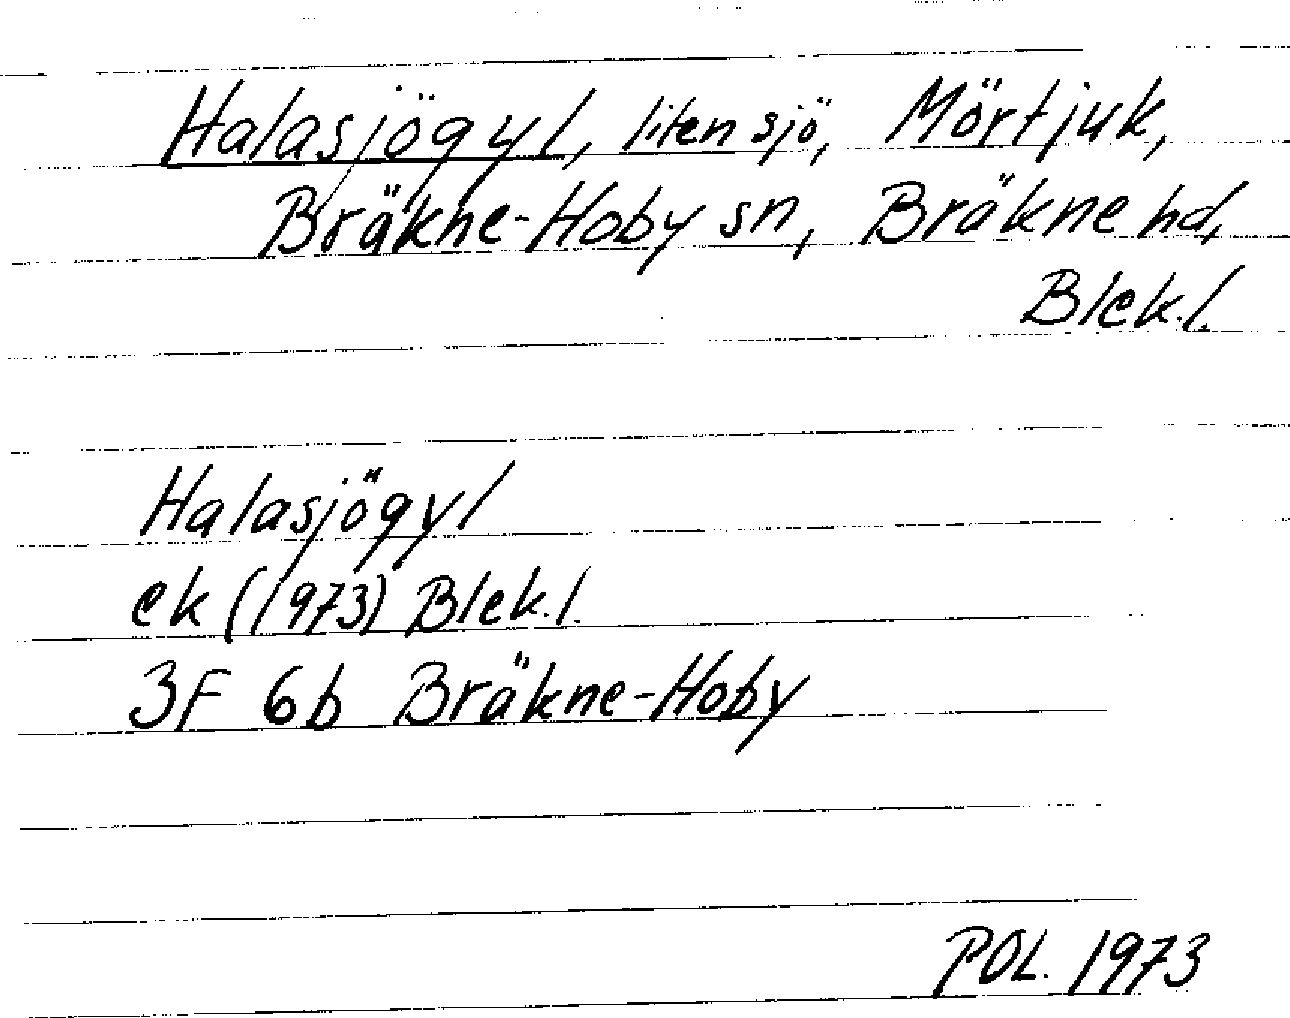 Halasjögyl, liten sjö, Mörtjuk,
Bräkne-Hoby sn, Bräkne hd,
Blek.l.
Halasjögyl
ek (1973) Blek.l.
3F 6b Bräkne-Hoby
POL. 1973